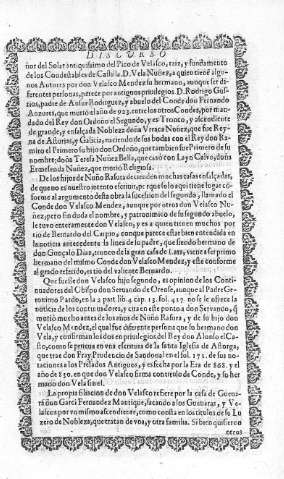 DISCURSO
ñor del Solar antiquissimo del Pico de Velasco, raiz, y fundamento
de los Condestables de Castilla. D. Vela Nuñez, a quien tiene algu-
nos Autores por don Velasco Mendez su hermano, aunque ser di-
ferentes personas, parece por antiguos privilegios. D. Rodrigo Gus-
tios, padre de Ansur Rodriguez, y abuelo del Conde don Fernando
Anzures, que murió el año de 923. entre los otros Condes, por man-
dado del Rey don Ordoño el Segundo, es Tronco, y ascendiente
de grande, y ensalçada Nobleza doña Vrraca Nuñez, que fue Rey-
na de Asturias, y Galicia, haziendo de sus bodas con el Rey don Ra-
miro el Primero su hijo don Ordoño, que tambien fue Primero de su
nombre; doña Teresa Nuñez Bella, que casó con Layn Calvo, doña
Ermesenda Nuñez, que murió Religiosa.
De los hijos de Nuño Rasura descienden muchas casas ensalçadas,
de que no es nuestro intento escrivir, porque solo aqui tiene lugar cō-
forme al argumento desta obra la sucession del segundo, llamado el
Conde don Velasco Mendez, aunque por otros don Velasco Nu-
ñez, pero sin duda el nombre, y patronimico de su segundo abuelo,
le tuvo enteramente don Velasco, y es a quien tienen muchos por
tio de Bernardo del Carpio, aunque parece estar bien entendida en
la noticia antecedente la linea de su padre, que siendo hermano de
don Gonçalo Diaz, tronco de la gran casa de Lara, viene a ser primo
hermano del mismo Conde don Velasco Mendez, y este conforme
al grado referido, es tio del valiente Bernardo.
Que fuesse don Velasco hijo segundo, es opinion de los Conti-
nuadores del Obispo don Servando de Orense, aunque al Padre Ge-
ronimo Pardo, en la 2. part. lib. 4. cap. 13. fol. 417. no se le ofrece la
noticia de los continuadores, y citan en este punto a don Servando, q̃
murió muchos años antes de los años de Nuño Rasura, y de su hijo don
Velasco Mendez, el qual fue diferente persona que su hermano don
Vela, y confirman los dos en privilegios del Rey don Alonso el Cas-
to, como se prueva en vna escritura de la santa Iglesia de Astorga,
que trae don Fray Prudencio de Sandoval en el fol. 171. de sus no-
taciones a los Prelados Antiguos, y es fecha por la Era de 868. y el
año de 830. en que don Velasco firma con titulo de Conde, y su her-
mano don Vela sin el.
La propia filiacion de don Velasco refiere por la casa de Gueva-
ra don Garci Fernandez Manrique, sacando a los Guevaras, y Ve-
lascos por vn mismo ascendiente, como consta en los titulos de su Lu-
zero de Nobleza, que tratan de vna, y otra familia. Si bien quisieron
otros